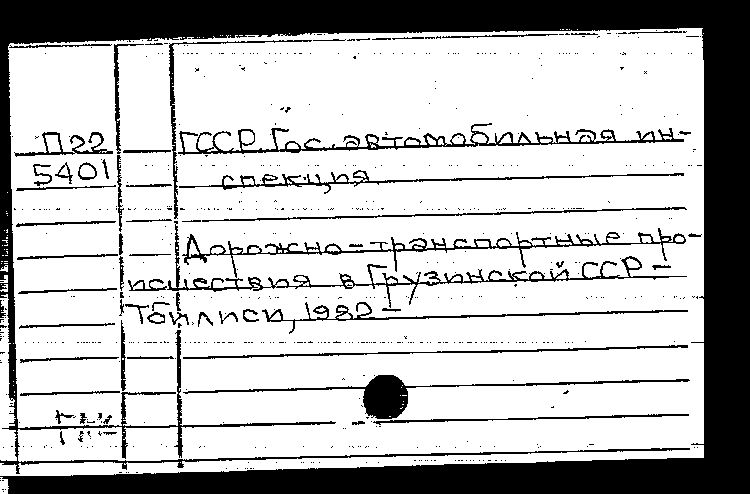 П22 ГССР. Гос. автомобильная ин-
5401 спекция
Дорожно-транспортные про-
исшествия в Грузинской ССР. -
Тбилиси, 1982 -